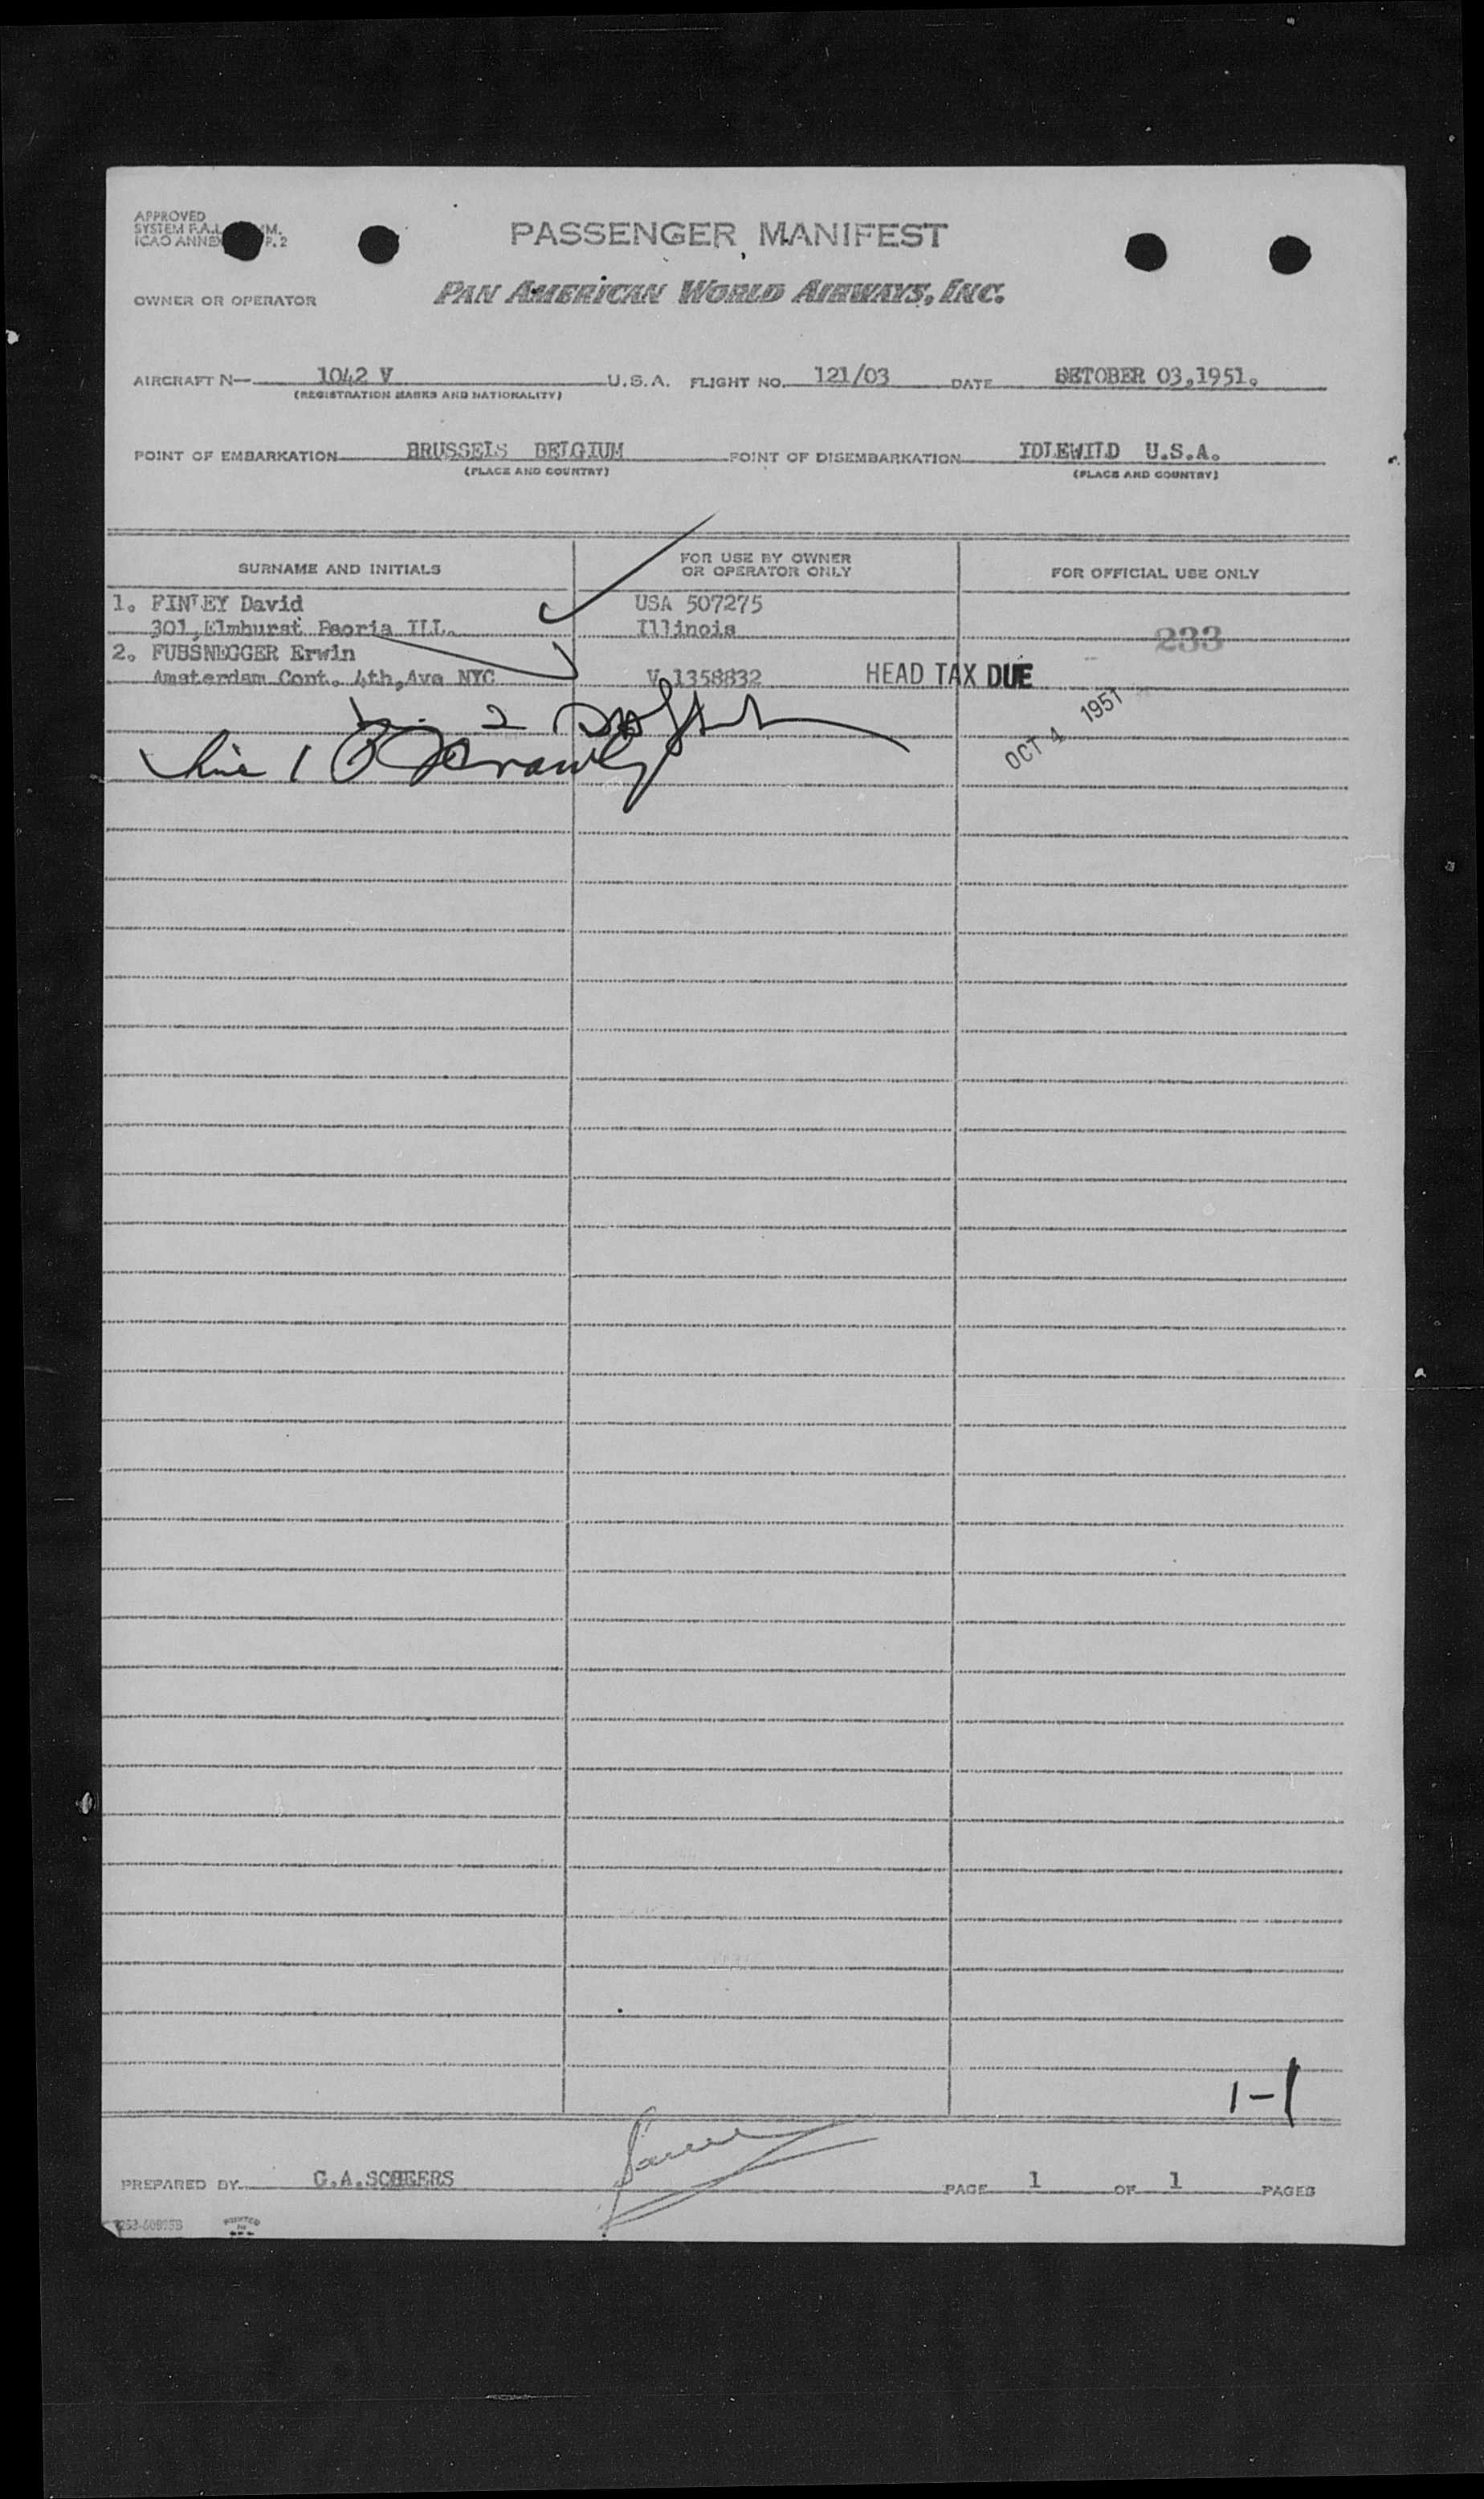 APPROVED
SYSTEM F.A.L. M.
ICAO ANNEX P. 2
PASSENGER MANIFEST
OWNER OR OPERATOR PAN AMERICAN WORLD AIRWAYS, INC.
AIRCRAFT N— 1042 V U.S.A. FLIGHT NO. 121/03 DATE OCTOBER 03,1951.
(REGISTRATION MARKS AND NATIONALITY)
POINT OF EMBARKATION BRUSSELS BELGIUM POINT OF DISEMBARKATION IDLEWILD U.S.A.
(PLACE AND COUNTRY) (PLACE AND COUNTRY)
SURNAME AND INITIALS FOR USE BY OWNER OR OPERATOR ONLY FOR OFFICIAL USE ONLY
1. FINLEY David USA 507275
301,Elmhurst Peoria ILL. Illinois 233
2. FUSSNEGGER Erwin
Amsterdam Cont. 4th,Ave NYC V 1358832 HEAD TAX DUE
OCT 4 1951
2
line 1
1-1
PREPARED BY C.A.SCHEERS PAGE 1 OF 1 PAGES
PRINTED IN